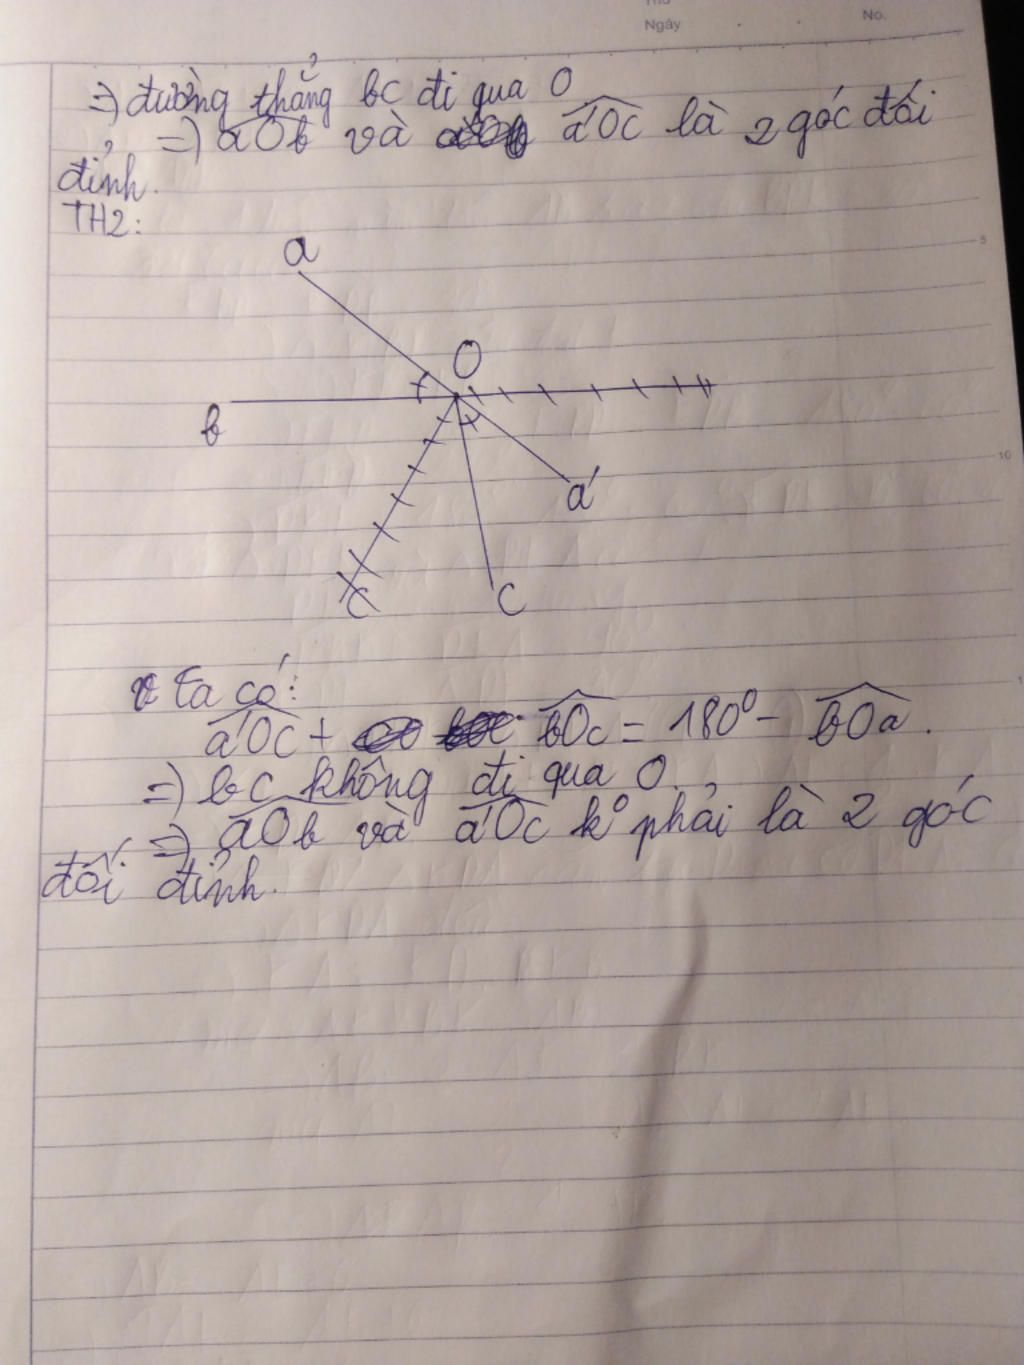 Thứ
Ngày . . No.
=> đường thẳng bc đi qua O
=> aOb và a'Oc là 2 góc đối
đỉnh.
TH2:
5
a
O
b
10
a'
c
c
Ta có:
a'Oc + bOc = 180° - bOa.
=> bc không đi qua O.
=> aOb và a'Oc k° phải là 2 góc
đối đỉnh.